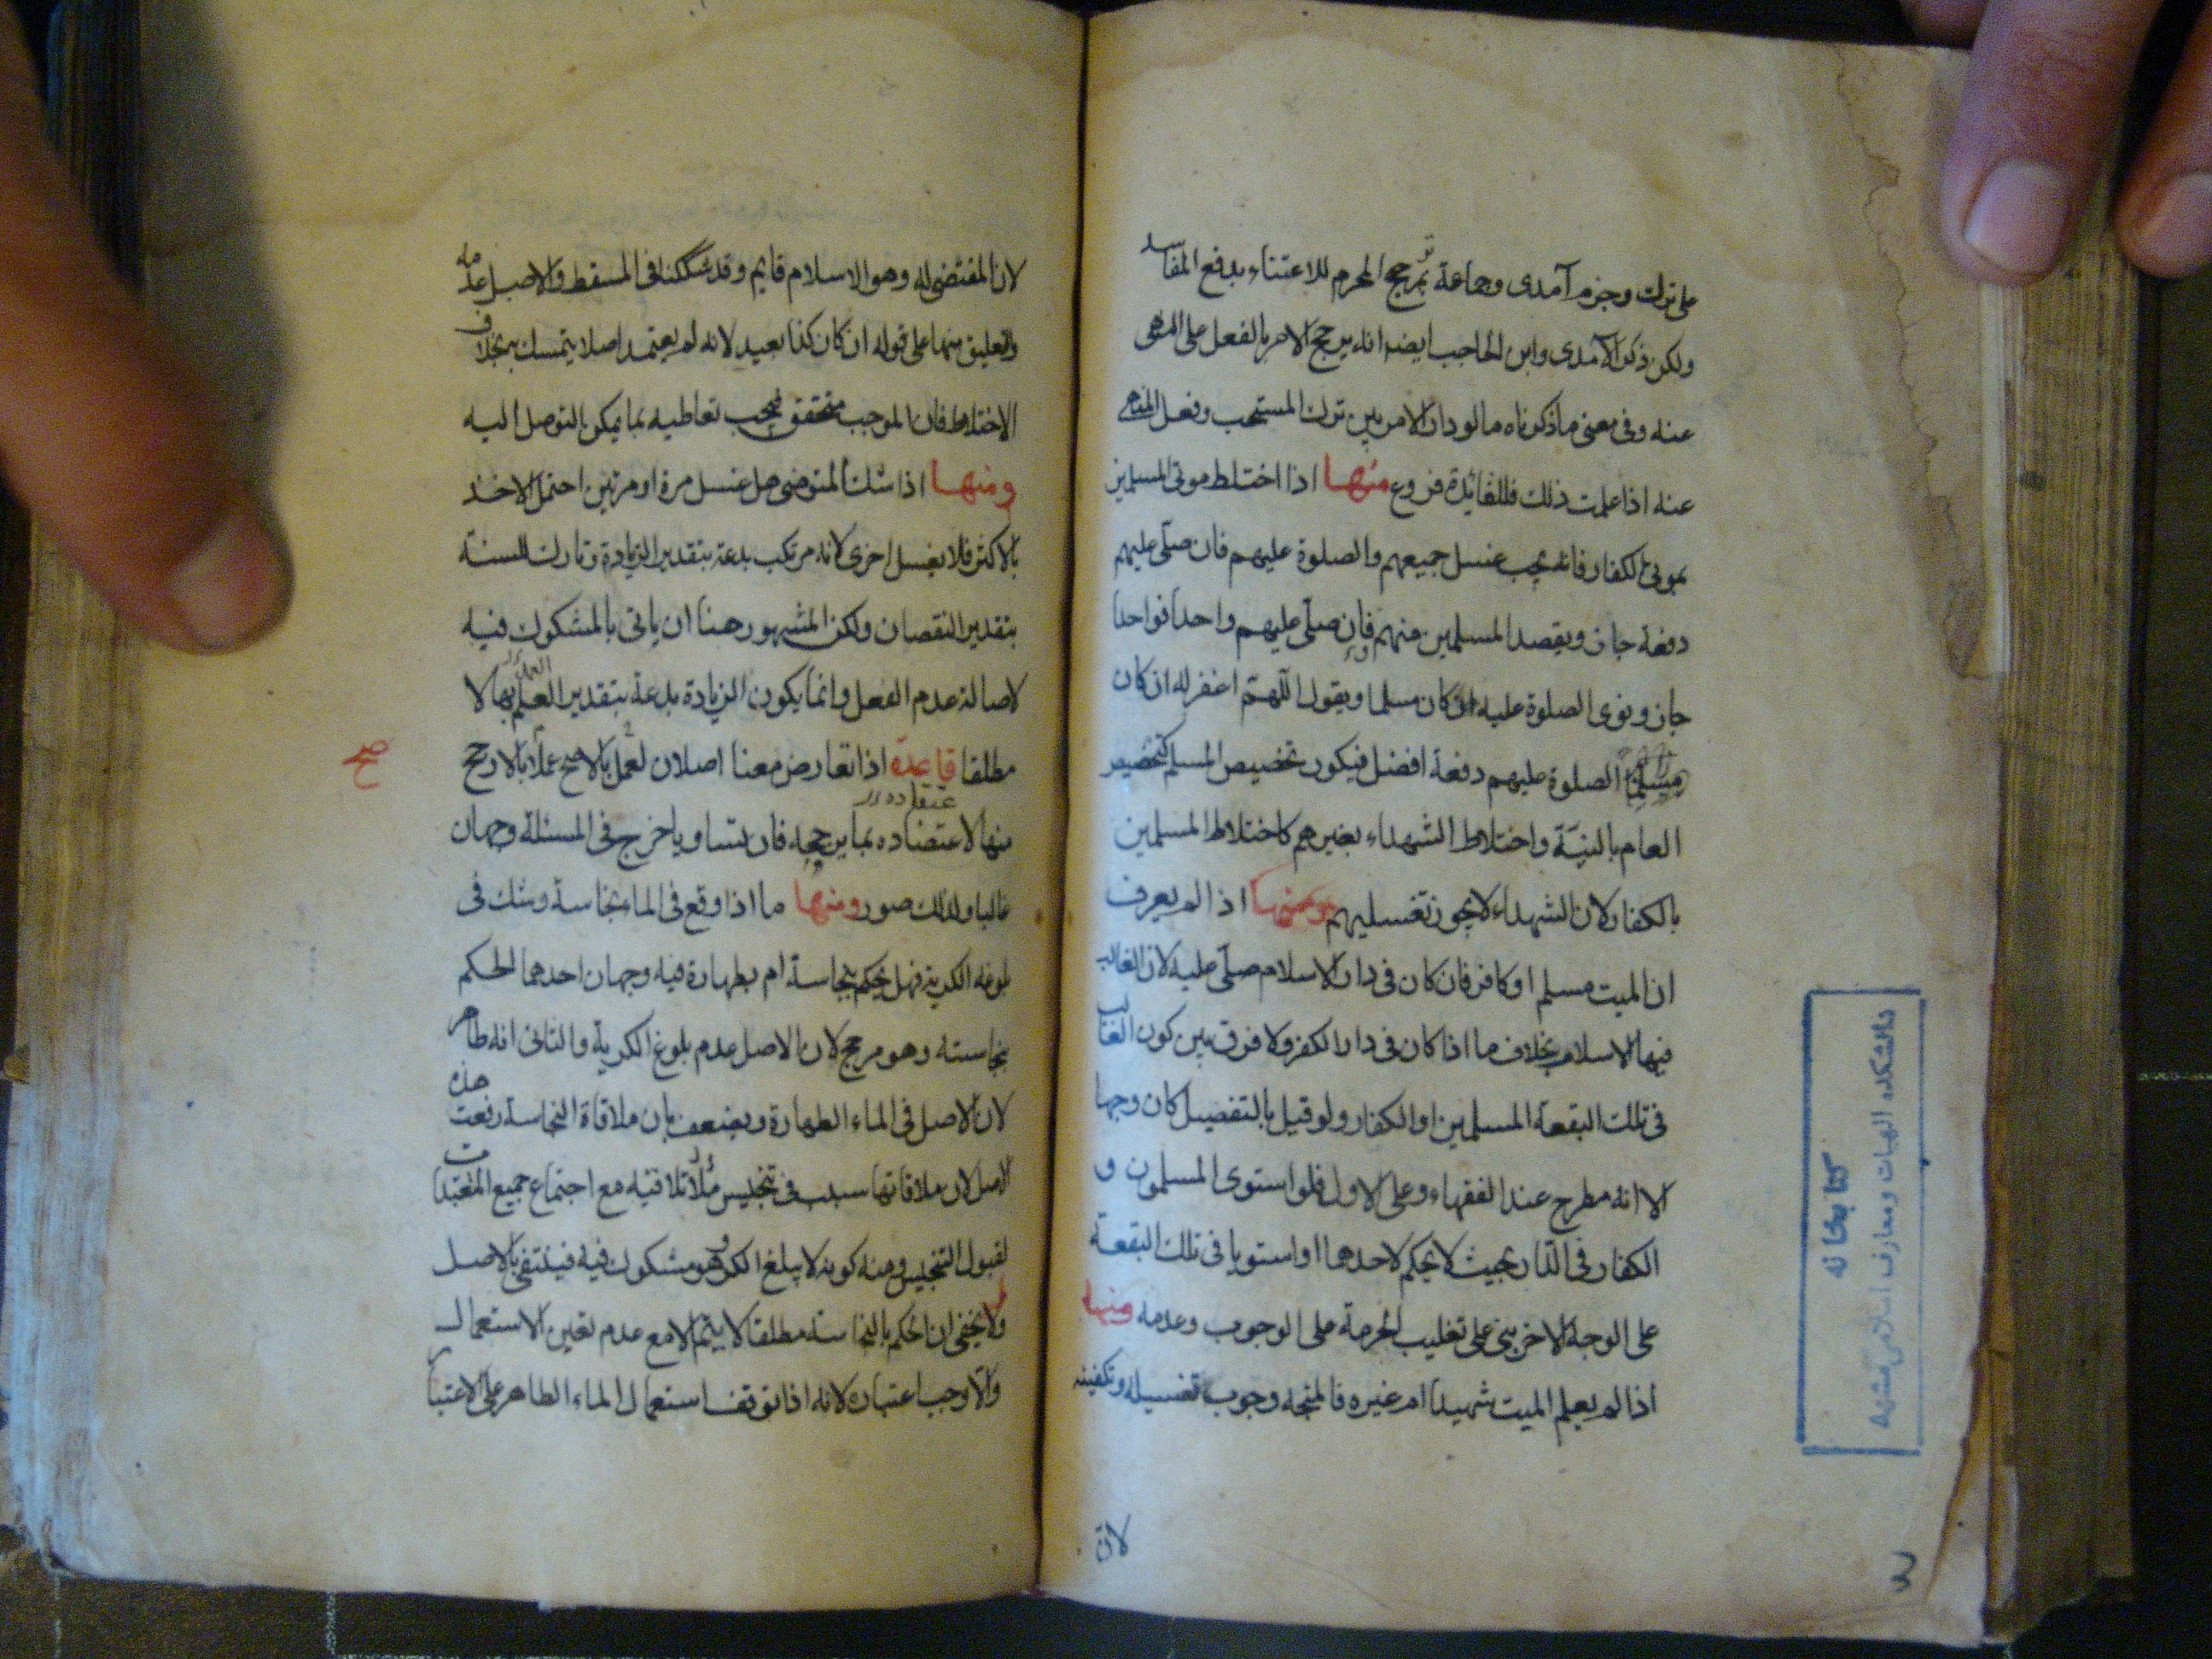 على ترك وجزم آمدى وجماعة بترجيح المحرم للاعتناء بدفع المفاسد
ولكن ذكر الآمدى وابن الحاجب ايضا انه يرجح الامر بالفعل على النهى
عنه وفى معنى ما ذكرناه ما لو دار الامر بين ترك المستحب وفعل المنهى
عنه اذا علمت ذلك فللقائدة فروع منها اذا اختلط موتى المسلمين
بموتى الكفار فانه يجب غسل جميعهم والصلوة عليهم فان صلى عليهم
دفعة جاز ويقصد المسلمين منهم فان صلى عليهم واحدا فواحدا
جاز ونوى الصلوة عليه ان كان مسلما ويقول اللهم اغفر له ان كان
مسلما الصلوة عليهم دفعة افضل فيكون تخصيص المسلم كتخصيص
العام بالنية واختلاط الشهداء بغيرهم كاختلاط المسلمين
بالكفار لان الشهداء لا يجوز تغسيلهم ومنها اذا لم يعرف
ان الميت مسلم او كافر فان كان فى دار الاسلام صلى عليه لان الغالب
فيها الاسلام بخلاف ما اذا كان فى دار الكفر ولا فرق بين كون الغالب
فى تلك البقعة المسلمين او الكفار ولو قيل بالتفصيل كان وجها
الا انه مطرح عند الفقهاء وعلى الاول فلو استوى المسلمون و
الكفار فى الدار بحيث لا يحكم لاحدهما او استويا فى تلك البقعة
على الوجه الاخر بنى على تغليب الحرمة على الوجوب وعدمه ومنها
اذا لم يعلم الميت شهيدا ام غيره فالمتجه وجوب تغسيله وتكفينه
لان
كتابخانه
دانشكده الهيات ومعارف اسلامى مشهد
لان المقتضى له وهو الاسلام قايم وقد شككنا فى المسقط والاصل عدمه
والتعليق منها على قوله ان كان كذا بعيد لانه لم يعتمد اصلا يتمسك به بخلاف
الاختلاط فان الموجب متحقق فيجب تعاطيه بما يمكن التوصل اليه
ومنها اذا شك المتوضى هل غسل مرة او مرتين احتمل الاخذ
بالاكثر فلا يغسل اخرى لانه مرتكب بدعة بتقدير الزيادة وتارك للسنة
بتقدير النقصان ولكن المشهور هنا ان ياتى بالمشكوك فيه
لاصالة عدم الفعل وانما يكون الزيادة بدعة بتقدير العلم بها لا
مطلقا قاعدة اذا تعارض معنا اصلان لعمل بالارجح
صح
منها لاعتضاده بما يرجحه فان تساويا خرج فى المسئلة وجهان
غالبا ولذلك صور ومنها ما اذا وقع فى الماء نجاسة وشك فى
بلوغه الكرية فهل يحكم بنجاسة ام بطهارة فيه وجهان احدهما الحكم
بنجاسته وهو مرجح لان الاصل عدم بلوغ الكرية والثانى انه طاهر
لان الاصل فى الماء الطهارة ويضعف بان ملاقاة النجاسة رفعت هذه
الاصل لان ملاقاتها سبب فى تنجيس ما تلاقيه مع اجتماع جميع المعتبرات
لقبول التنجيس ومنه كونه لا يبلغ الكر وهو مشكوك فيه فينتفى بالاصل
ولا يخفى ان الحكم بالنجاسة مطلقا لا يتم الا مع عدم تعين الاستعمال
والا وجب اعتباره لانه اذا توقف استعمال الماء الطاهر على الاعتبار